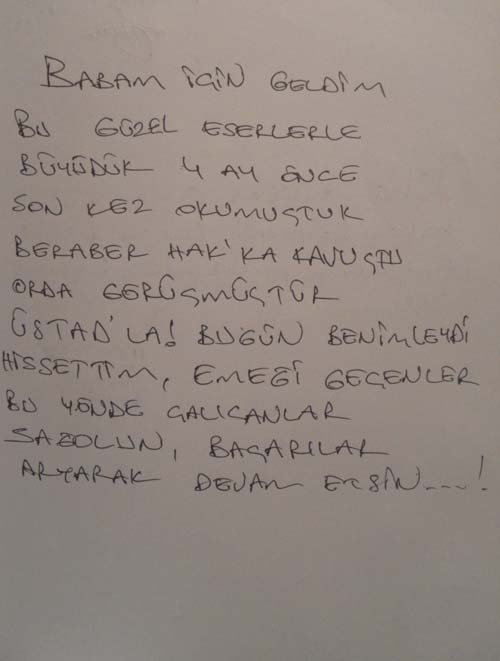 BABAM İÇİN GELDİM
BU GÜZEL ESERLERLE
BÜYÜDÜK 4 AY ÖNCE
SON KEZ OKUMUŞTUK
BERABER HAK'KA KAVUŞTU
ORDA GÖRÜŞMÜŞTÜR
ÜSTAD'LA! BUGÜN BENİMLEYDİ
HİSSETTİM, EMEĞİ GEÇENLER
BU YÖNDE ÇALIŞANLAR
SAĞOLUN, BAŞARILAR
ARTARAK DEVAM ETSİN....!